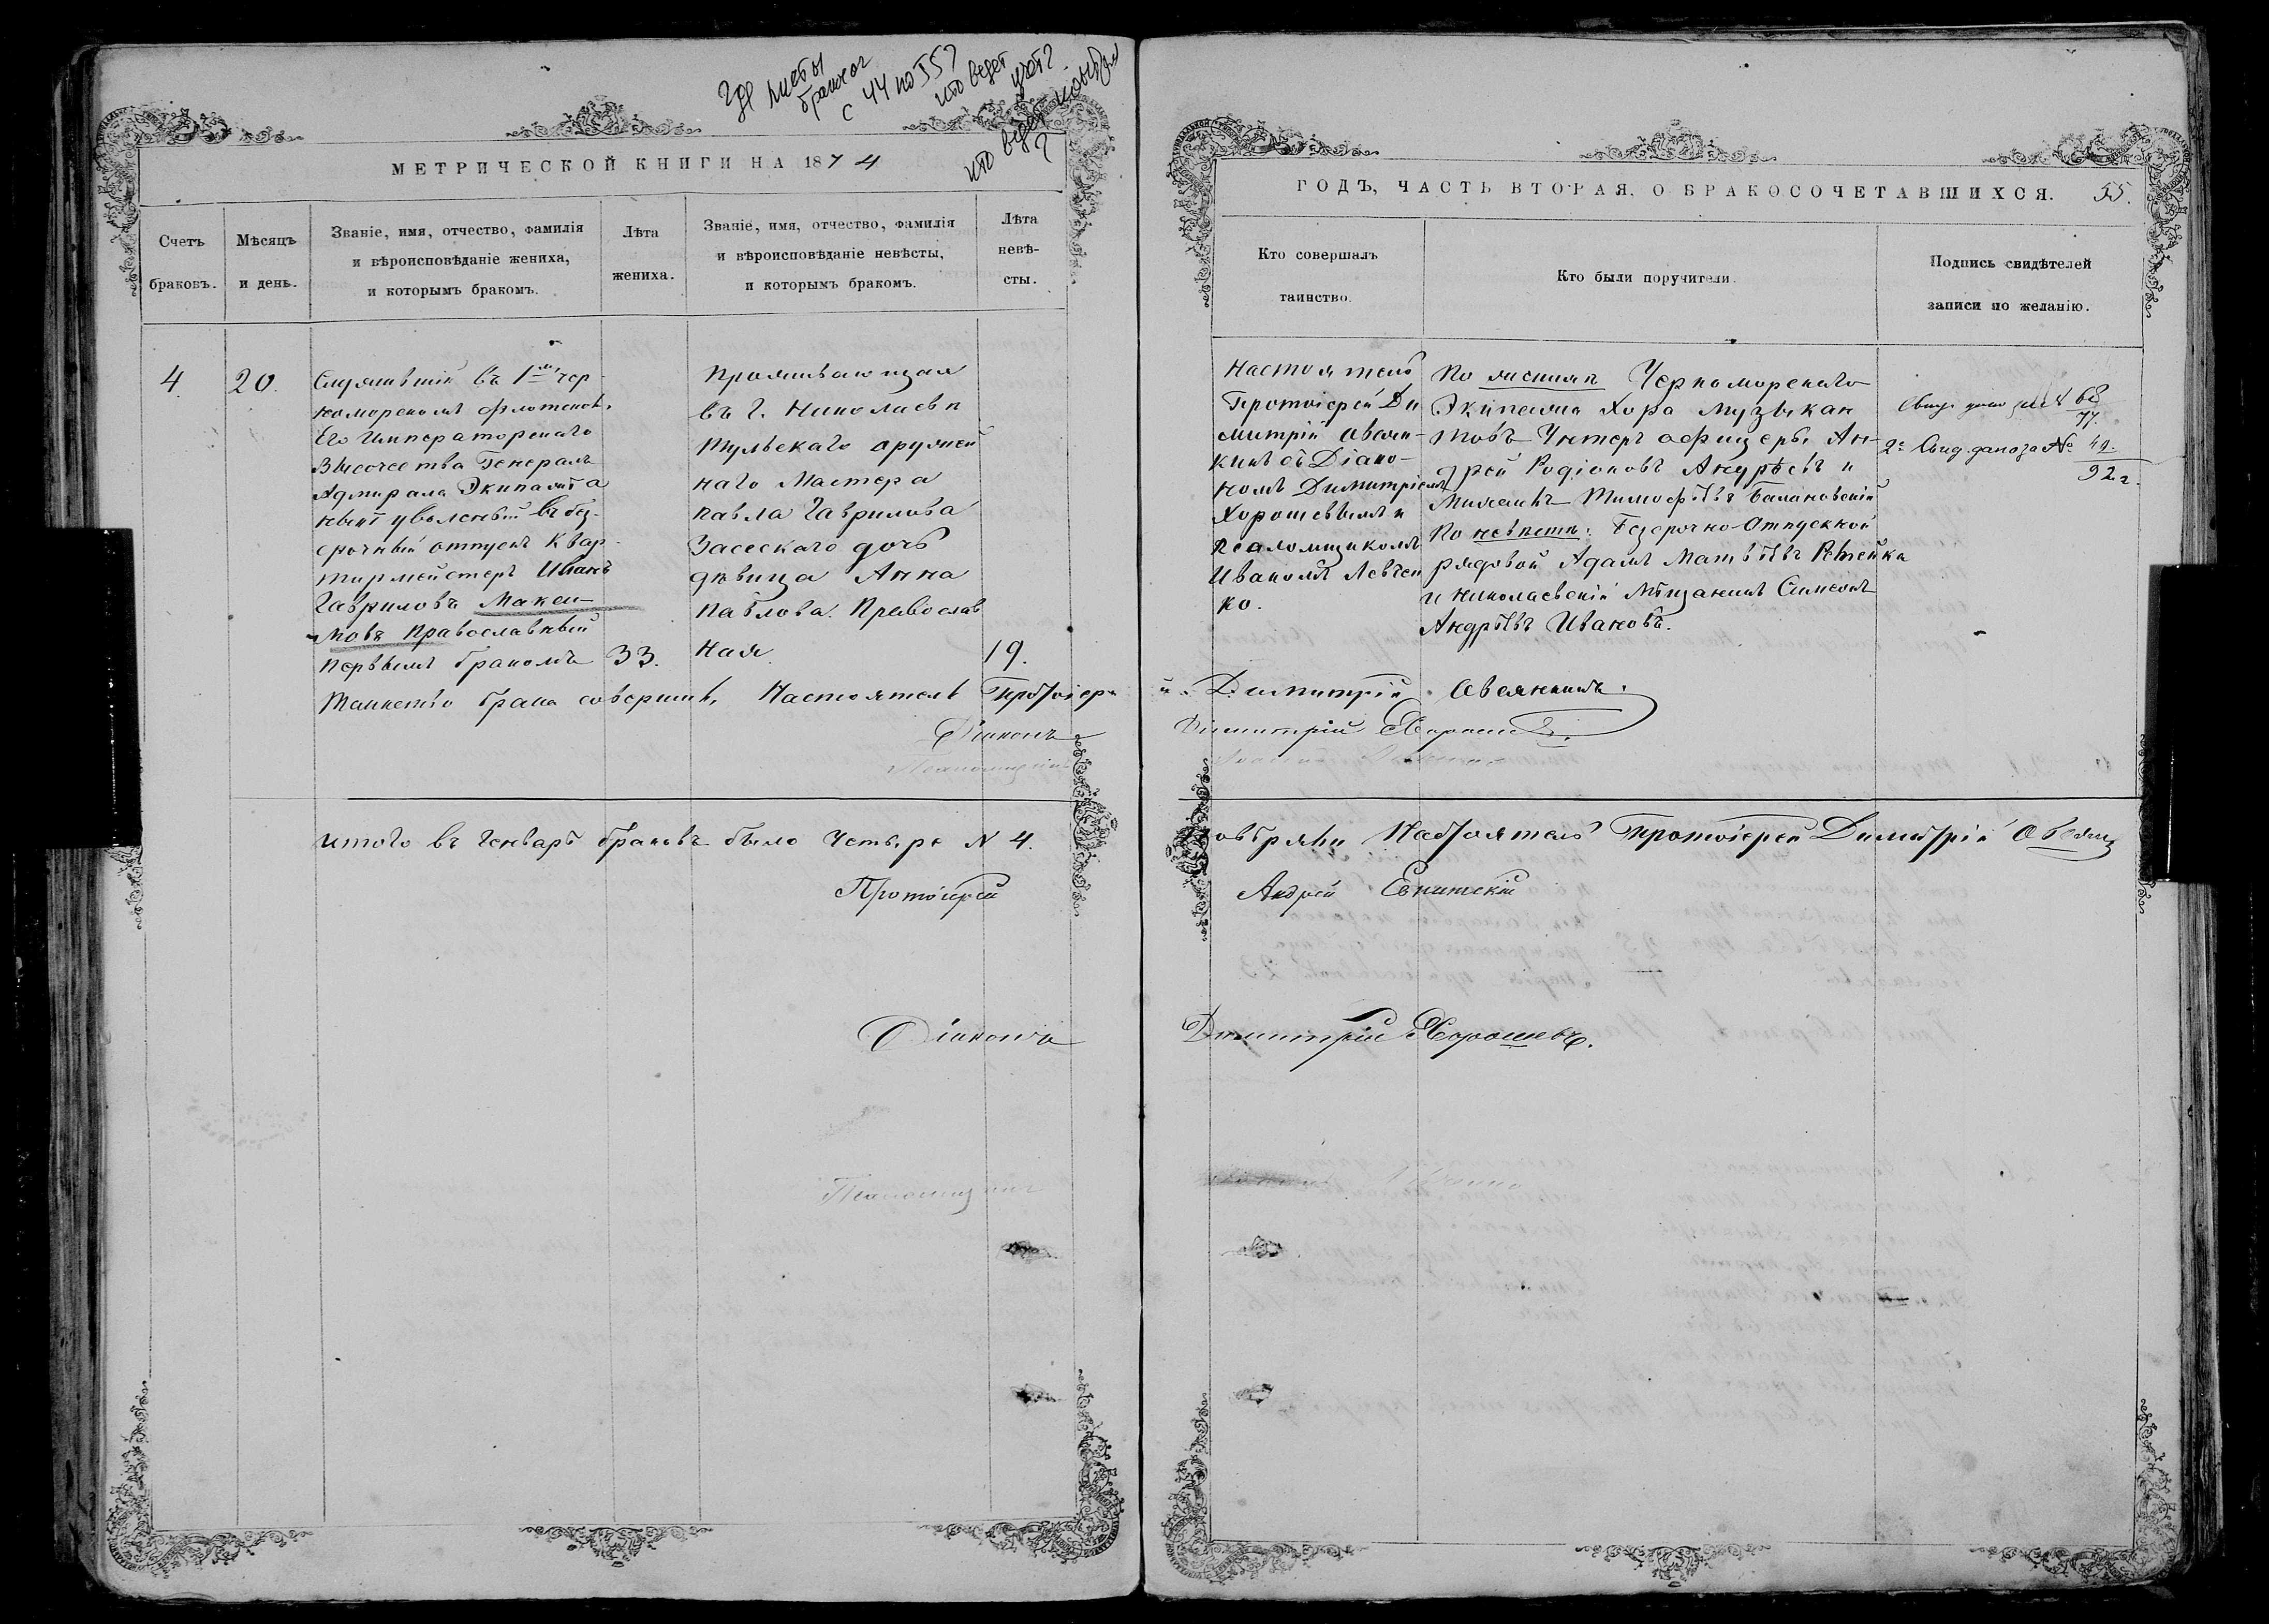 где листы
браков
с 44 по 55?
кто ведет
учет?
кто ведет
?
МЕТРИЧЕСКОЙ КНИГИ НА 1874
Счетъ
браковъ.
Мѣсяцъ
и день.
Званіе, имя, отчество, фамилія
и вѣроисповѣданіе жениха,
и которымъ бракомъ.
Лѣта
жениха.
Званіе, имя, отчество, фамилія
и вѣроисповѣданіе невѣсты,
и которымъ бракомъ.
Лѣта
невѣ-
сты.
4.
20.
Служившій въ 1мъ Чер-
номорскомъ флотскомъ
Его Императорскаго
Высочества Генералъ
Адмирала Экипажѣ а
нынѣ уволеный въ без-
срочный отпускъ Квар-
тирмейстеръ Иванъ
Гавриловъ Макси-
мовъ Православный
первымъ бракомъ
33.
Проживающая
въ г. Николаевѣ
Тульскаго оружей
наго Мастера
Павла Гаврилова
Засѣскаго дочь
дѣвица Анна
Павлова. Православ
ная
19.
Таинство брака совершилъ Настоятель Протоіере
Діаконъ
Псаломщикъ
итого въ Генварѣ браковъ было четыре N 4.
Протоіерей
Діаконъ
Псаломщикъ
ГОДЪ, ЧАСТЬ ВТОРАЯ, О БРАКОСОЧЕТАВШИХСЯ.
55.
Кто совершалъ
таинство.
Кто были поручители.
Подпись свидѣтелей
записи по желанію.
Настоятель
Протоіерей Ди
митрій Овсян-
кинъ съ Діако-
номъ Димитріемъ
Хорошевымъ и
псаломщикомъ
Иваномъ Левчен
ко.
По женихѣ Черноморскаго
Экипажа Хора музыкан
товъ Унтеръ офицеры Ан-
дрей Родіоновъ Андрѣевъ и
Михаилъ Тимофѣевъ Балановскій
По невѣстѣ: Безсрочно-Отпускной
рядовой Адамъ Матвѣевъ Рѣпейка
и Николаевскій Мѣщанинъ Симеонъ
Андрѣевъ Ивановъ.
68
77.
2е Свид. дано за № 41.
92 г.
й Димитрій Овсянкинъ.
Димитрій Хорошевъ.
овѣряли Настоятель Протоіерей Димитрій Овсянк
Андрей
Димитрій Хорошевъ.